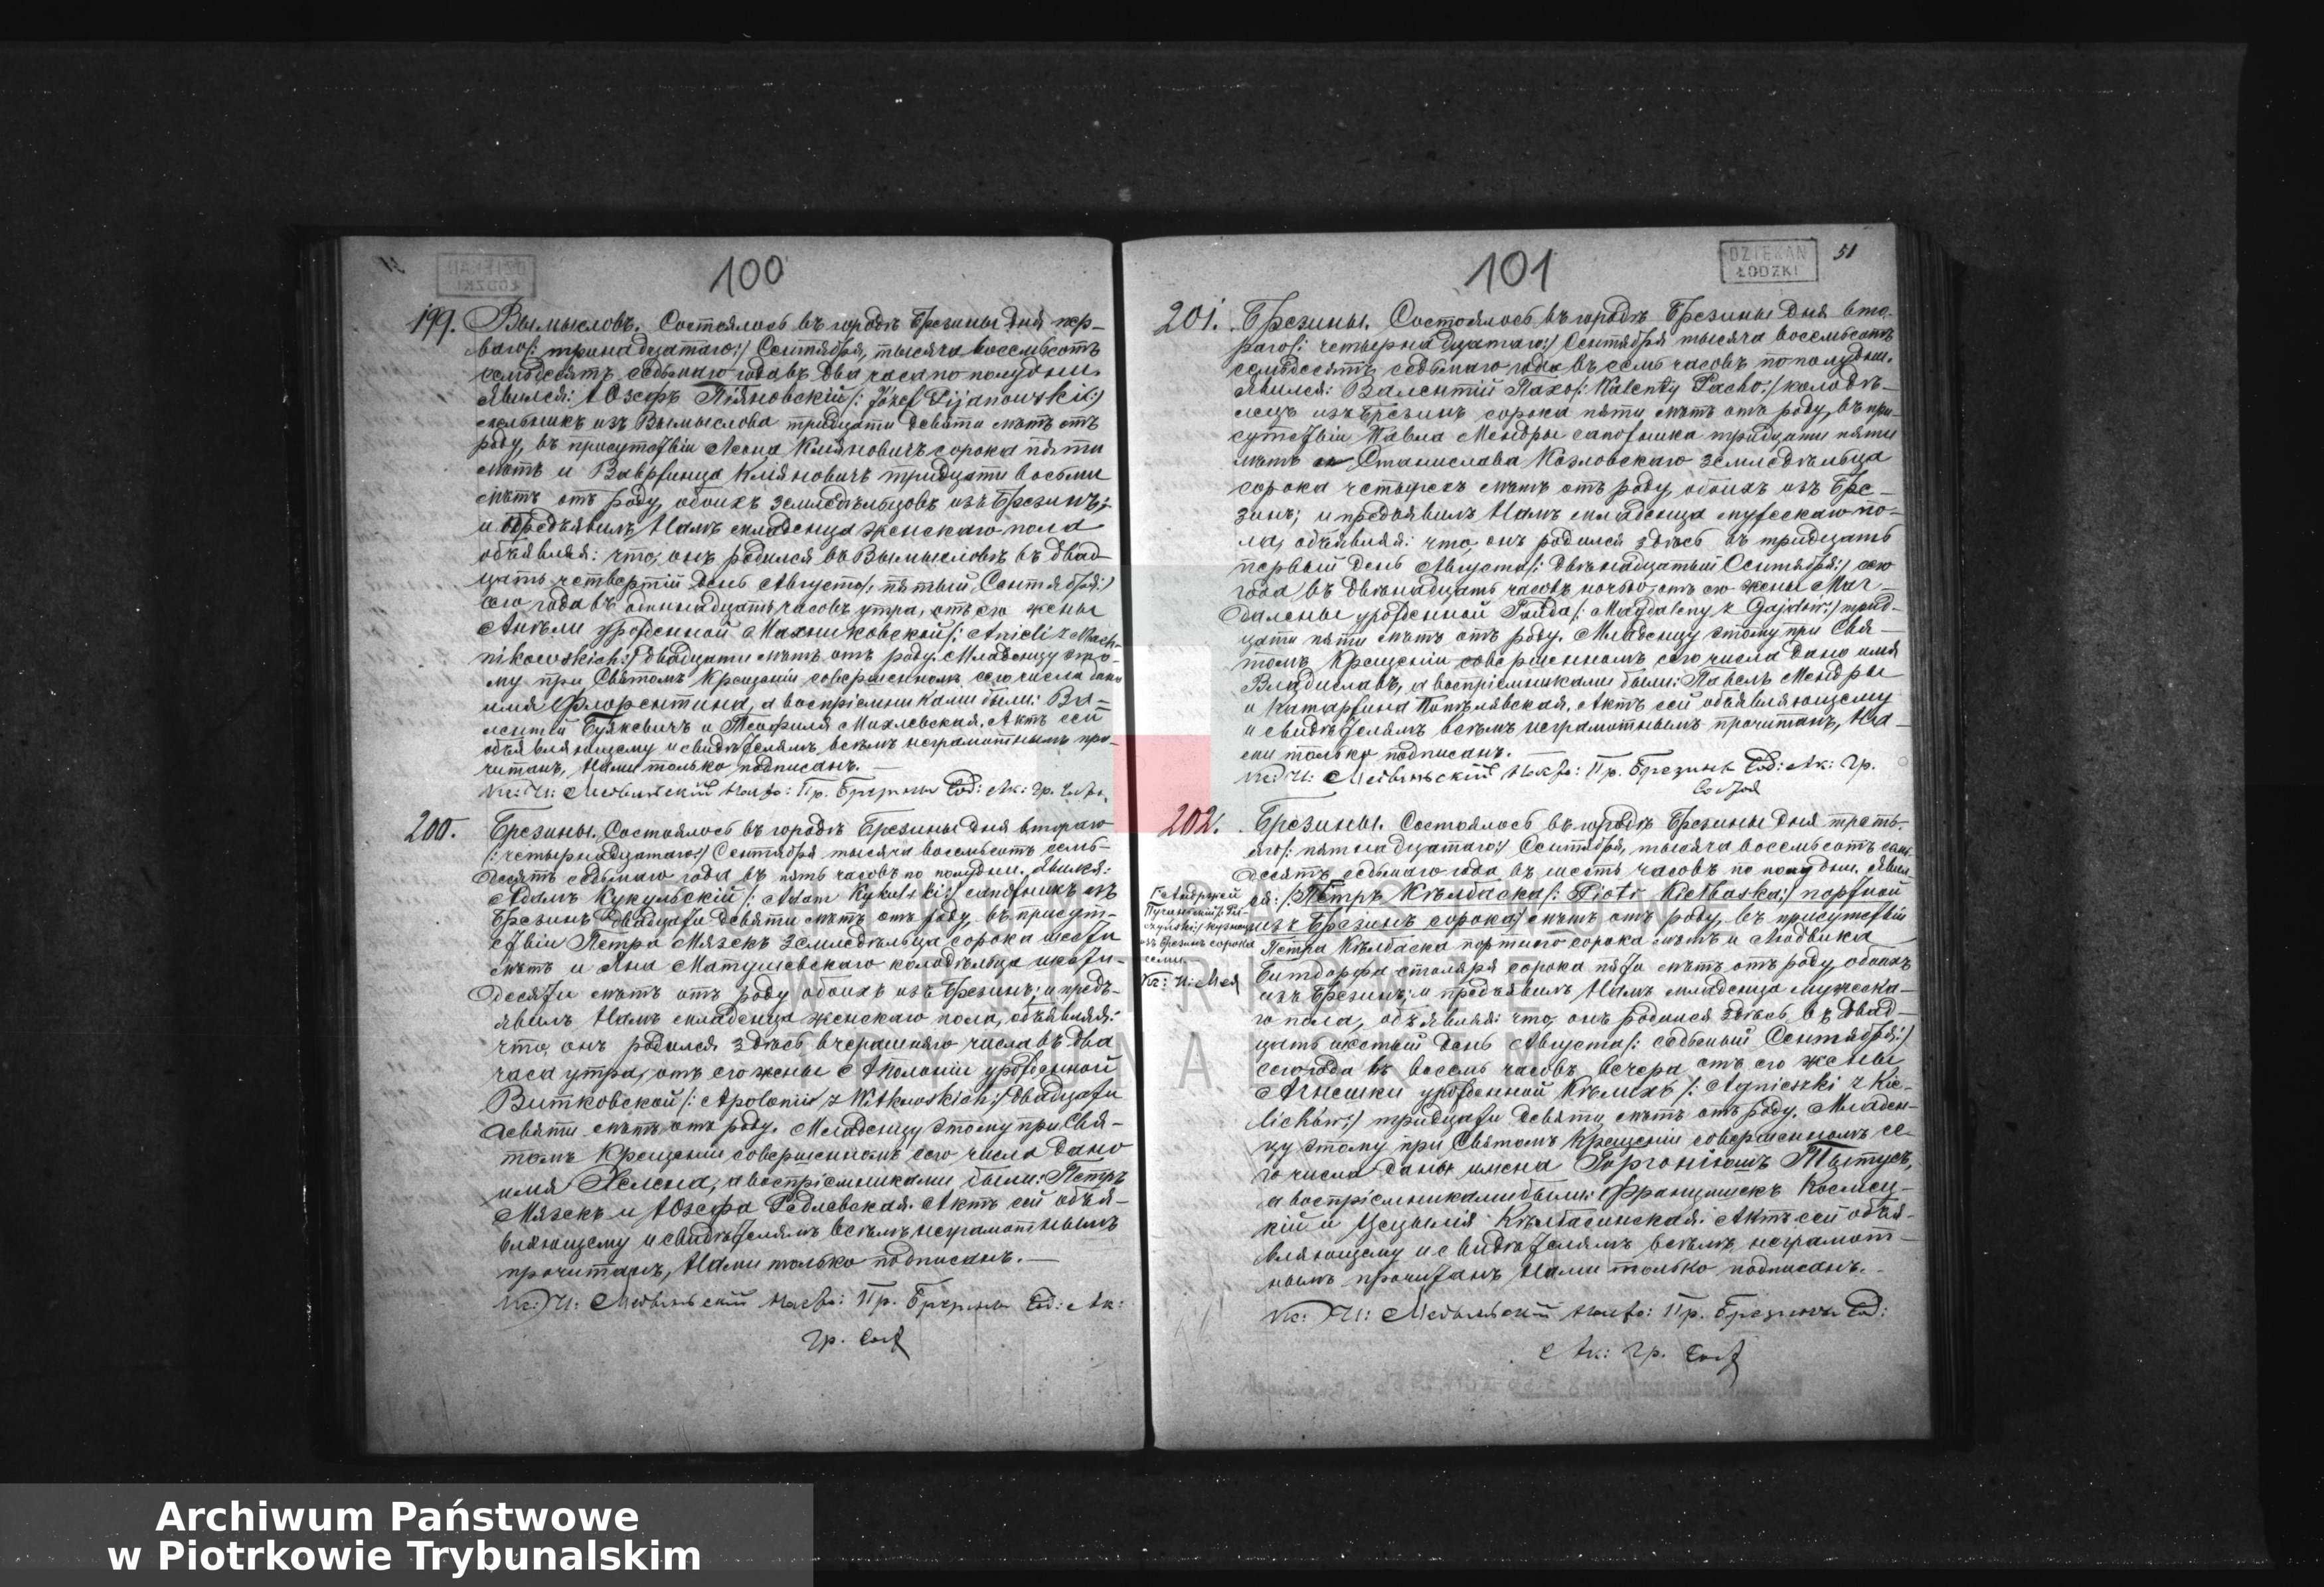 100
199. Вымысловъ. Состоялось въ городѣ Брезины дня пер-
ваго /: тринадцатаго :/ Сентября, тысяча восемьсотъ
семьдесятъ седьмаго года въ два часа по полудни.
Явился: Юзефъ Піяновскій /: Józef Pijanowski :/
мельникъ изъ Вымыслова тридцати девяти лѣтъ отъ
роду, въ присутствіи Леона Кляновичъ сорока пяти
лѣтъ и Ваврзинца Кляновичъ тридцати восьми
лѣтъ отъ роду, обоихъ земледѣльцовъ изъ Брезинъ;
и предъявилъ Намъ младенца женскаго пола
объявляя: что, онъ родился въ Вымысловѣ въ двад-
цать четвертый день Августа /: пятый Сентября :/
сего года въ одиннадцать часовъ утра, отъ его жены
Анѣли урожденной Махниковской /: Anieli z Mach-
nikowskich :/ двадцати лѣтъ отъ роду. Младенцу это-
му при Святомъ Крещеніи совершенномъ сего числа дано
имя Флорентина, а воспріемниками были: Ва-
лентій Буякевичъ и Теофиля Михлевская. Актъ сей
объявляющему и свидѣтелямъ всѣмъ неграмотнымъ про-
читанъ, Нами только подписанъ. —
Пр. Брезины Сод: Ак: Гр. Сост.
200. Брезины. Состоялось въ городѣ Брезины дня втораго
/: четырнадцатаго :/ Сентября тысяча восемьсотъ семь-
десятъ седьмаго года въ пять часовъ по полудни. Явился:
Адамъ Кукульскій /: Adam Kukulski :/ сапожникъ изъ
Брезинъ двадцати девяти лѣтъ отъ роду, въ присут-
ствіи Петра Мязекъ земледѣльца сорока шести
лѣтъ и Яна Матушевскаго колодѣльца шести-
десяти лѣтъ отъ роду обоихъ изъ Брезинъ; и предъ-
явилъ Намъ младенца женскаго пола, объявляя:
что, онъ родился здѣсь вчерашняго числа въ два
часа утра, отъ его жены Аполоніи урожденной
Витковской /: Apolonii z Witkowskich :/ двадцати
девяти лѣтъ отъ роду. Младенцу этому при Свя-
томъ Крещеніи совершенномъ сего числа дано
имя Хелена, а воспріемниками были: Петръ
Мязекъ и Юзефа Редлевская. Актъ сей объя-
вляющему и свидѣтелямъ всѣмъ неграмотнымъ
прочитанъ, Нами только подписанъ. —
Пр. Брезины Сод: Ак:
Гр. Сост
101
DZIEKAN
ŁÓDZKI
51
201. Брезины. Состоялось въ городѣ Брезины дня вто-
раго /: четырнадцатаго :/ Сентября тысяча восемьсотъ
семьдесятъ седьмаго года въ семь часовъ по полудни.
Явился: Валентій Пахо /: Walenty Pacho :/ колодѣ-
лецъ изъ Брезинъ сорока пяти лѣтъ отъ роду, въ при-
сутствіи Павла Мендры сапожника тридцати пяти
лѣтъ и Станислава Козловскаго земледѣльца
сорока четырехъ лѣтъ отъ роду, обоихъ изъ Бре-
зинъ; и предъявилъ Намъ младенца мужескаго по-
ла, объявляя: что, онъ родился здѣсь въ тридцать
первый день Августа /: двѣнадцатый Сентября :/ сего
года въ двѣнадцать часовъ ночью, отъ его жены Маг-
далены урожденной Гайда /: Magdaleny z Gajdów :/ трид-
цати пяти лѣтъ отъ роду. Младенцу этому при Свя-
томъ Крещеніи совершенномъ сего числа дано имя
Владиславъ, а воспріемниками были: Павелъ Мендры
и Катаржина Попѣлявская. Актъ сей объявляющему
и свидѣтелямъ всѣмъ неграмотнымъ прочитанъ, На-
ми только подписанъ. —
Пр. Брезины Сод: Ак: Гр.
Состоя
202. Брезины. Состоялось въ городѣ Брезины дня треть-
яго /: пятнадцатаго :/ Сентября, тысяча восемьсотъ семь-
десятъ седьмаго года, въ шесть часовъ по полудни. Явил-
ся: /: Петръ Кѣлбаска /: Piotr Kiełbaska :/ портной
изъ Брезинъ сорока :/ лѣтъ отъ роду, въ присутствіи
Петра Кѣлбаска портнаго сорока лѣтъ и Людвика
Битдорфа столяря сорока пяти лѣтъ отъ роду, обоихъ
изъ Брезинъ; и предъявилъ Намъ младенца мужеска-
го пола, объявляя: что, онъ родился здѣсь въ двад-
цать шестый день Августа /: седьмый Сентября :/
сего года въ восемь часовъ вечера отъ его жены
Агнешки урожденной Кѣлихъ /: Agnieszki z Kie-
lichów :/ тридцати девяти лѣтъ отъ роду. Младен-
цу этому при Святомъ Крещеніи совершенномъ се-
го числа даны имена Горгоніюшъ Тытусъ,
а воспріемниками были: Францишекъ Косміц-
кій и Цецылія Кѣлбасинская. Актъ сей объя-
вляющему и свидѣтелямъ всѣмъ неграмот-
нымъ прочитанъ Нами только подписанъ. —
Пр. Брезины Сод:
Ак: Гр. Сост
Андржей
изъ Брезинъ сорока
семи
Archiwum Państwowe
w Piotrkowie Trybunalskim